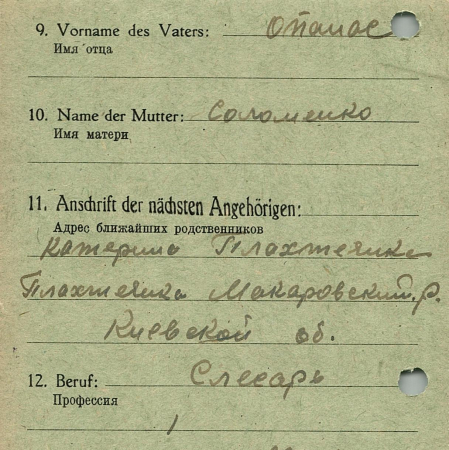 9. Vorname des Vaters: Опанас
Имя отца
10. Name der Mutter: Соломенко
Имя матери
11. Anschrift der nächsten Angehörigen:
Адрес ближайших родственников
Катерина Плахтечика
Плахтечика Макаровский. р.
Киевской об.
12. Beruf: Слесарь
Профессия